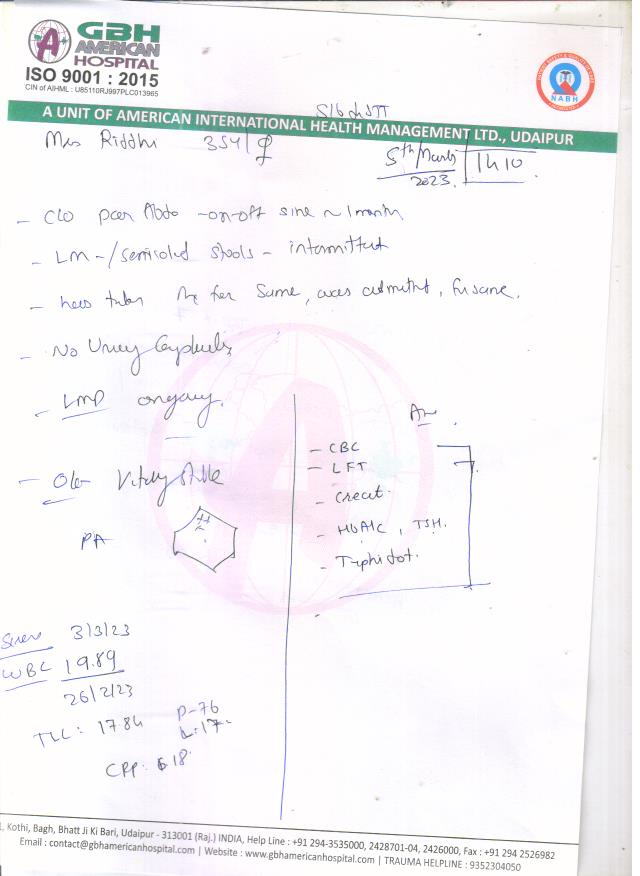 GBH
AMERICAN
HOSPITAL
ISO 9001 : 2015
CIN of AIHML : U85110RJ997PLC013965
NABH
A UNIT OF AMERICAN INTERNATIONAL HEALTH MANAGEMENT LTD., UDAIPUR
Riddhi 35y/♀
5th March 2023. 14 10
- C/o pain Abdo - on-off since ~ 1 month
- LM - /semisolid stools - intermittent
- has taken for same, was admitted, for same.
- No
- LMP ongoing.
- O/e Vitally stable
PA
- CBC
- LFT
- Creat.
- HbA1c, TSH.
- Typhidot.
3/3/23
WBC 19.89
26/2/23
TLC: 17.84 P-76
L:17
CRP: 18
Kothi, Bagh, Bhatt Ji Ki Bari, Udaipur - 313001 (Raj.) INDIA, Help Line : +91 294-3535000, 2428701-04, 2426000, Fax : +91 294 2526982
Email : contact@gbhamericanhospital.com | Website : www.gbhamericanhospital.com | TRAUMA HELPLINE : 9352304050